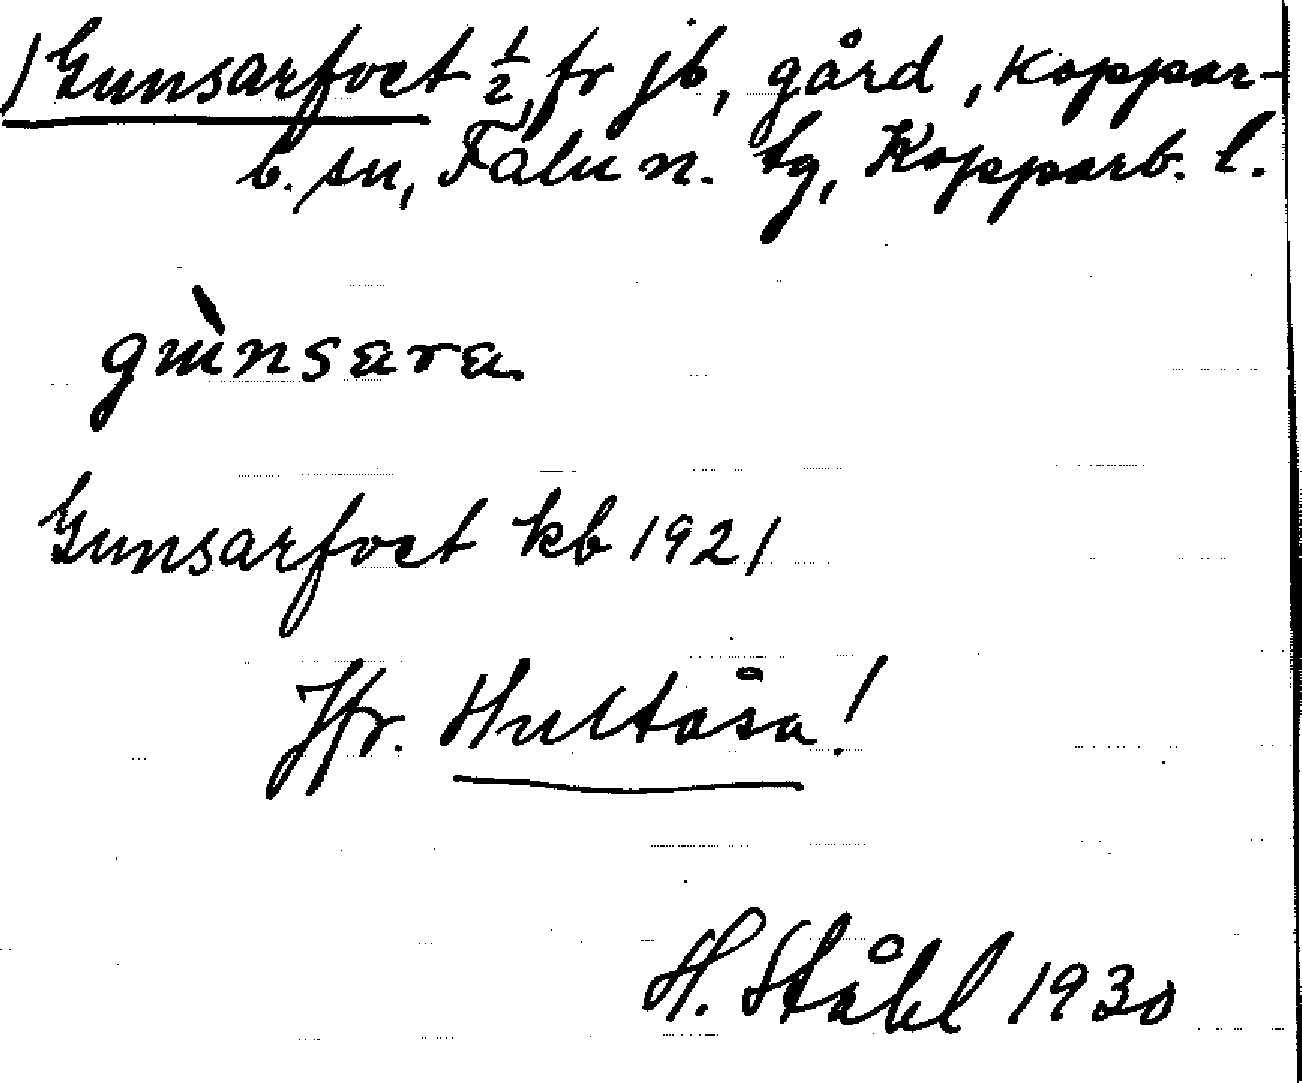 /Gunsarfvet ½, fr jb, gård, Koppar-
b. sn, Falu n. tg, Kopparb. l.
gùnsara
Gunsarfvet kb 1921
Jfr. Hultåsa!
H. Ståhl 1930